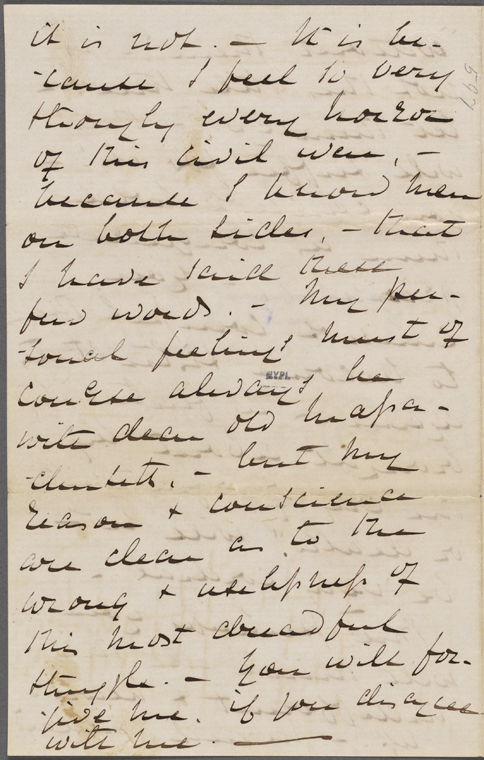 it is not. — It is be-
-cause I feel so very
strongly every horror
of this civil war, —
because I know men
on both sides, — that
I have said these
few words. — My per-
-sonal feelings must of
NYPL
course always be
with dear old Massa-
-chusetts, — but my
reason & conscience
are clear as to the
wrong & uselessness of
this most dreadful
struggle. — You will for-
give me. if you disagree
with me. —